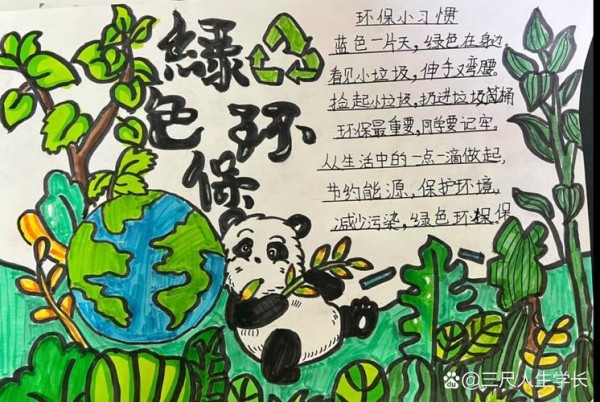 綠色环保
环保小习惯
蓝色一片天，绿色在身边
看见小垃圾，伸手又弯腰。
捡起小垃圾，扔进垃圾桶
环保最重要，同学要记牢。
从生活中的一点一滴做起，
节约能源，保护环境，
减少污染，绿色环保
@三尺人生学长